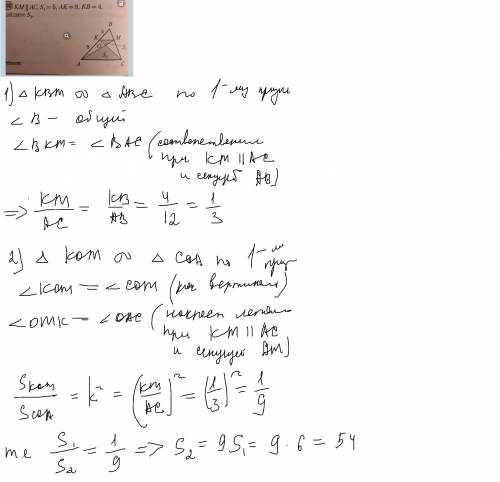 KM ∥ AC, S₁ = 6, AK = 8, KB = 4.
S₂
B
K M
O
A C
1) △ KBM ∞ △ ABC по 1-му призн
∠ B - общий
∠ BKM = ∠ BAC (соответствен
при KM ∥ AC
и секущей AB)
=> KM/AC = KB/AB = 4/12 = 1/3
2) △ KOM ∞ △ COA по 1-м призн
∠ KOM = ∠ COM (как вертикал)
∠ OMK = ∠ OAC (накрест лежащ
при KM ∥ AC
и секущей AM)
S KOM / S COA = k² = (KM/AC)² = (1/3)² = 1/9
те S₁/S₂ = 1/9 => S₂ = 9S₁ = 9 · 6 = 54